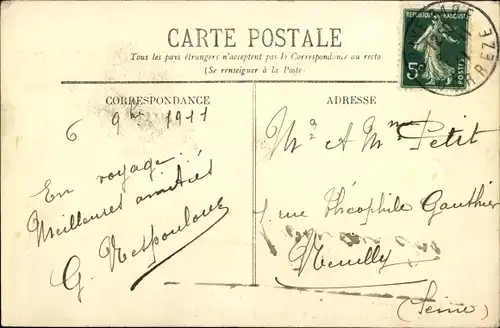 CARTE POSTALE
Tous les pays étrangers n'acceptent pas la Correspondance au recto
(Se renseigner à la Poste
REPUBLIQUE FRANÇAISE
5c
POSTES
CORRESPONDANCE
ADRESSE
6 9bre 1911
En voyage.
Meilleures amitiés
G.
Mr & Mme Petit
rue Théophile Gauthier
Neuilly
(Seine)